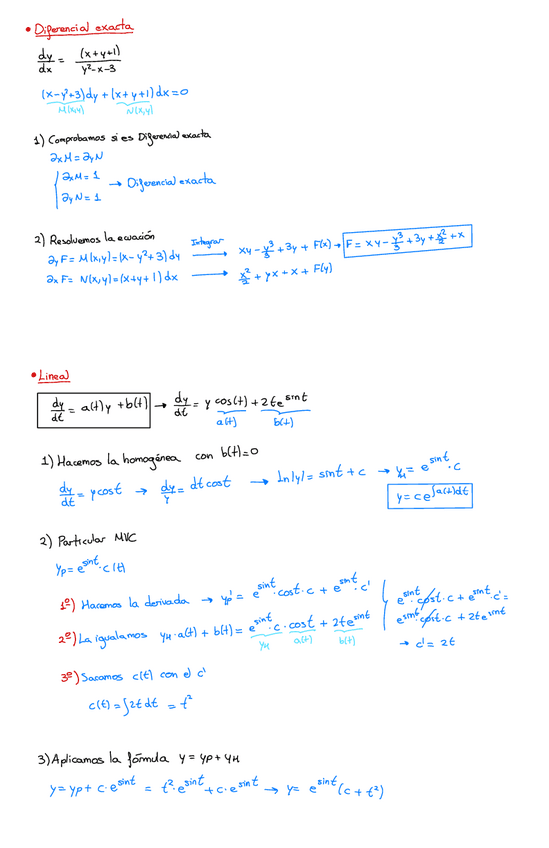 • Diferencial exacta
dy/dx = (x+y+1)/(y²-x-3)
(x-y²+3)dy + (x+y+1)dx=0
M(x,y) N(x,y)
1) Comprobamos si es Diferencial exacta
∂xM = ∂yN
{ ∂xM = 1
∂yN = 1 → Diferencial exacta
2) Resolvemos la ecuación
∂yF = M(x,y) = (x-y²+3) dy Integrar → xy - y³/3 + 3y + F(x) → F = xy - y³/3 + 3y + x²/2 + x
∂xF = N(x,y) = (x+y+1) dx → x²/2 + yx + x + F(y)
• Lineal
dy/dt = a(t)y + b(t) → dy/dt = y cos(t) + 2te^sint
a(t) b(t)
1) Hacemos la homogénea con b(t)=0
dy/dt = ycost → dy/y = dt cost → Ln|y| = sint + c → yH = e^sint · c
y = ce^∫a(t)dt
2) Particular MVC
yp = e^sint · c(t)
1º) Hacemos la derivada → yp' = e^sint · cost · c + e^sint · c'
2º) La igualamos yH·a(t) + b(t) = e^sint · c · cost + 2te^sint
yH a(t) b(t)
{ e^sint · cost · c + e^sint · c' =
e^sint · cost · c + 2te^sint
→ c' = 2t
3º) Sacamos c(t) con el c'
c(t) = ∫2t dt = t²
3) Aplicamos la fórmula y = yp + yH
y = yp + c·e^sint = t²·e^sint + c·e^sint → y = e^sint (c + t²)